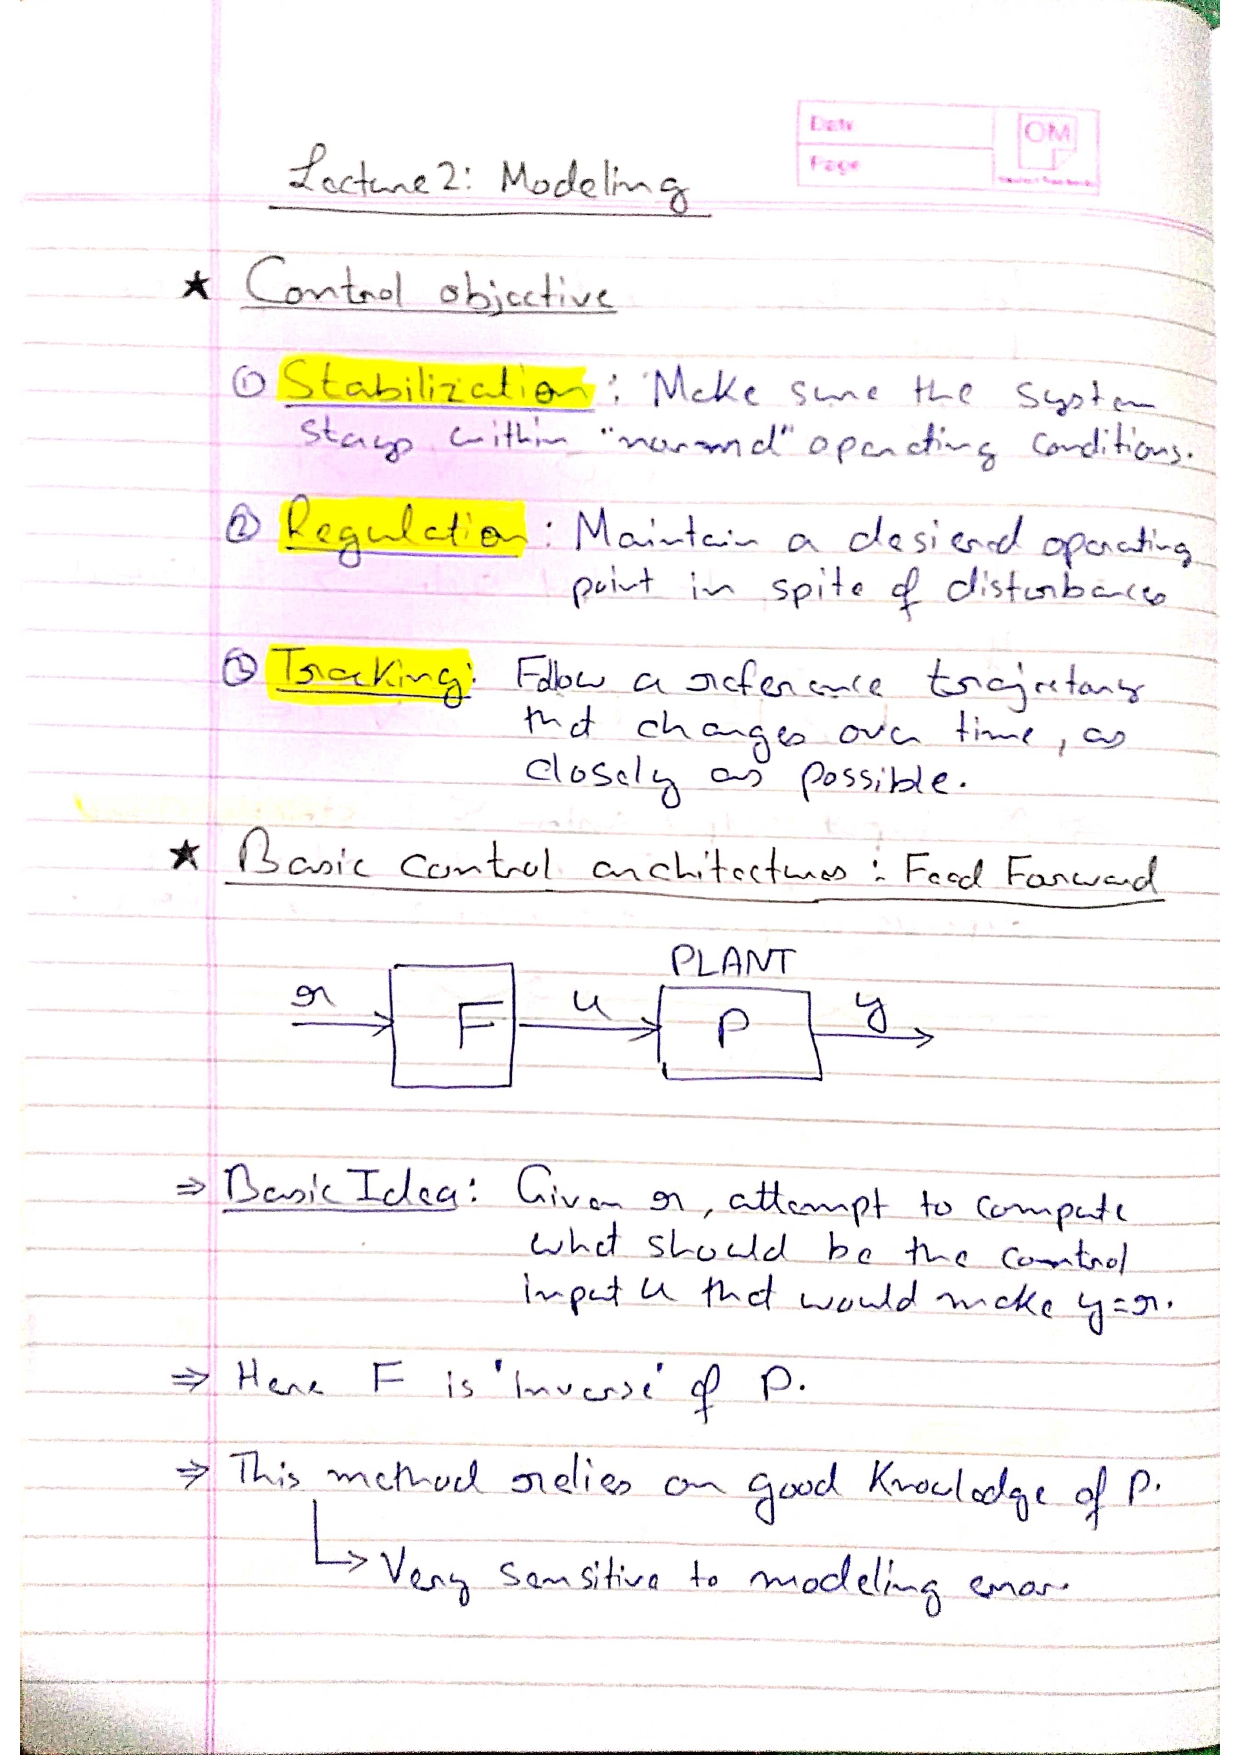 Date
OM
Page
Lecture 2: Modeling
★ Control objective
① Stabilization : Make sure the system
stays within "normal" operating conditions.
② Regulation : Maintain a desiered operating
point in spite of disturbances
③ Tracking: Follow a reference trajectory
that changes over time, as
closely as possible.
★ Basic control architectures : Feed Forward
PLANT
r F u P y
⇒ Basic Idea: Given r, attempt to compute
what should be the control
input u that would make y=r.
⇒ Here F is 'inverse' of P.
⇒ This method relies on good Knowledge of P.
↳ Very sensitive to modeling error.